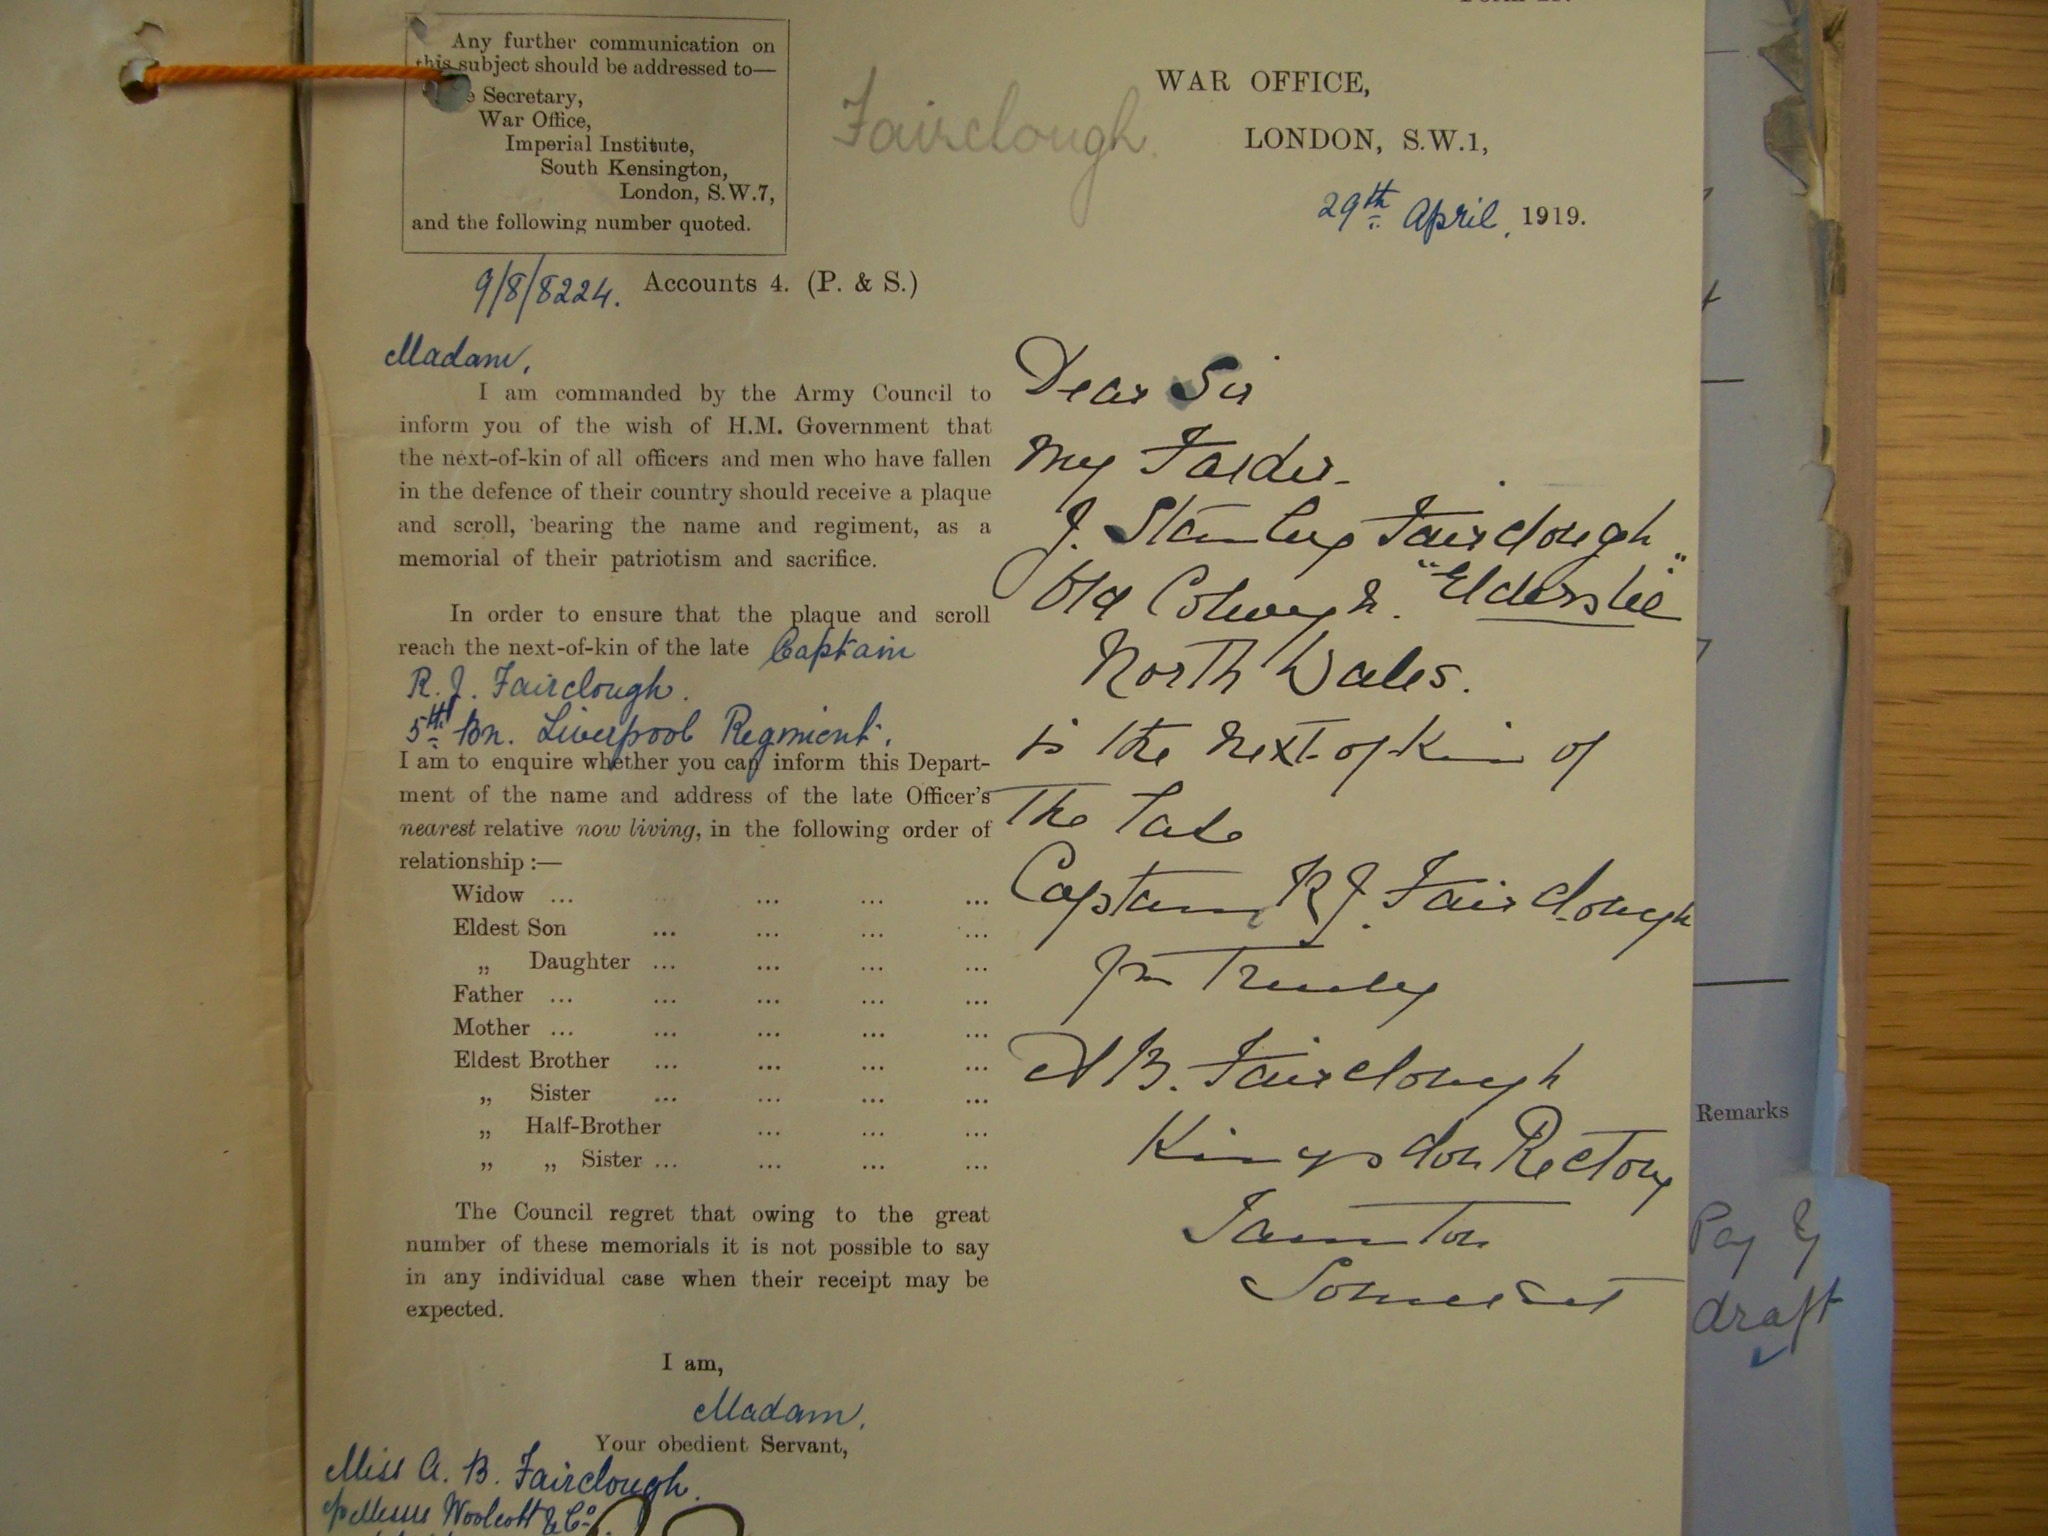 Any further communication on
this subject should be addressed to—
Secretary,
War Office,
Imperial Institute,
South Kensington,
London, S.W.7,
and the following number quoted.
Fairclough.
WAR OFFICE,
LONDON, S.W.1,
29th April, 1919.
9/8/8224. Accounts 4. (P. & S.)
Madam,
I am commanded by the Army Council to
inform you of the wish of H.M. Government that
the next-of-kin of all officers and men who have fallen
in the defence of their country should receive a plaque
and scroll, bearing the name and regiment, as a
memorial of their patriotism and sacrifice.
In order to ensure that the plaque and scroll
reach the next-of-kin of the late Captain
R. J. Fairclough.
5th Bn. Liverpool Regiment.
I am to enquire whether you can inform this Depart-
ment of the name and address of the late Officer's
nearest relative now living, in the following order of
relationship :—
Widow ... ... ... ... ...
Eldest Son ... ... ... ...
„ Daughter ... ... ... ...
Father ... ... ... ... ...
Mother ... ... ... ... ...
Eldest Brother ... ... ... ...
„ Sister ... ... ... ...
„ Half-Brother ... ... ...
„ „ Sister ... ... ... ...
The Council regret that owing to the great
number of these memorials it is not possible to say
in any individual case when their receipt may be
expected.
I am,
Madam,
Your obedient Servant,
Miss A. B. Fairclough.
c/o Messrs Woolcott & Co.
Dear Sir
My
J. Stanley Fairclough
Old Colwyn. "Elderslie"
North Wales.
is the next-of-kin of
The late
Captain R J. Fairclough
Yrs Truly
A B. Fairclough
Kingsdon Rectory
Taunton
Somerset
Remarks
Pay
draft